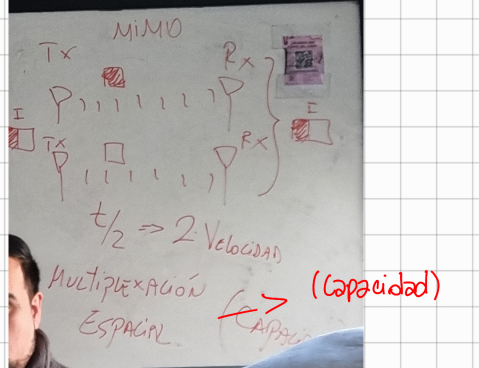 MIMO
Tx
Rx
I
I
Tx
Rx
t/2 => 2 VELOCIDAD
MULTIPLEXACIÓN
ESPACIAL
(CAPACI
(Capacidad)